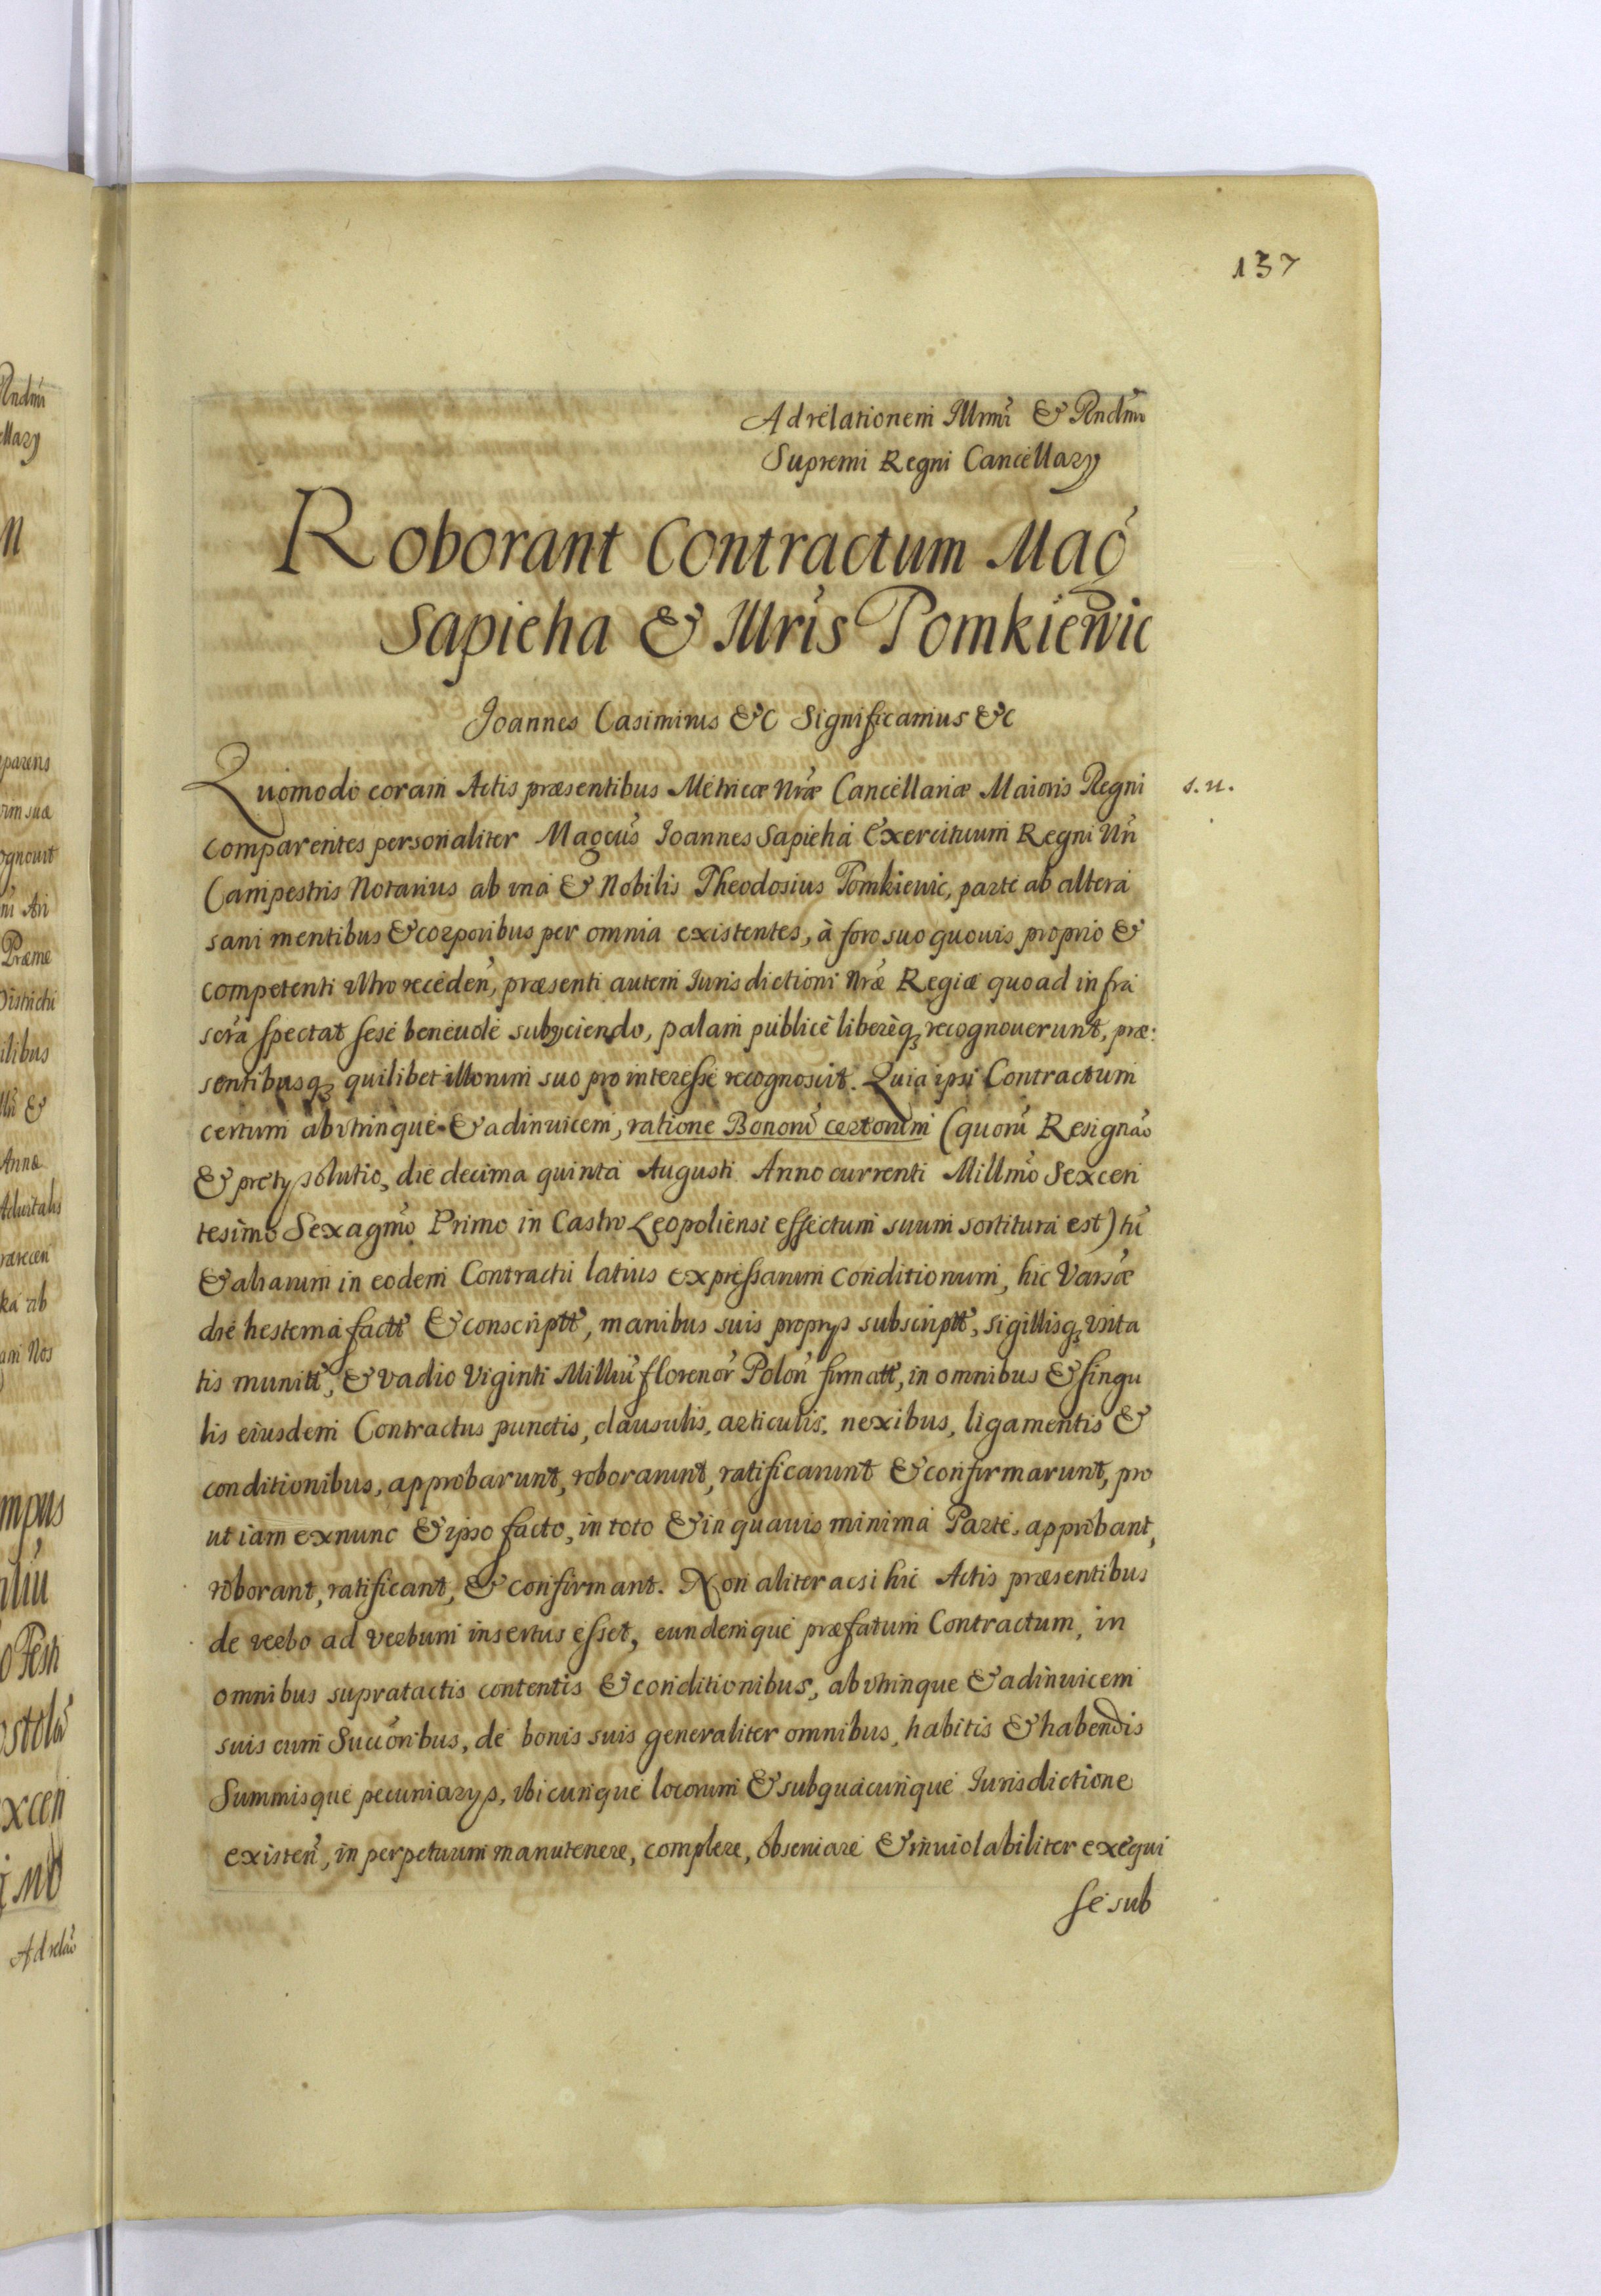 137
Ad relationem Illrmi & Rndmi
Supremi Regni Cancellarij
Roborant Contractum Mag
Sapieha & Illris Pomkiewic
Joannes Casimirus &c Significamus &c
Quomodo coram Actis præsentibus Metricæ Nræ Cancellariæ Maioris Regni
s. n.
comparentes personaliter Magcus Ioannes Sapieha Exercituum Regni Nri
Campestris Notarius ab vna & Nobilis Theodosius Pomkiewic, parte ab altera
sani mentibus & corporibus per omnia existentes, à foro suo quouis proprio &
competenti vltro receden, præsenti autem Iurisdictioni Nræ Regiæ quoad infra
scra spectat sese beneuole subyciendo, palam publicè liberèq, recognouerunt, præ:
sentibusq, quilibet illorum suo pro interesse recognoscit. Quia ipsi Contractum
certum ab vtrinque & adinuicem, ratione Bonorū certorum (quorū Resignāo
& prety solutio, die decima quinta Augusti Anno currenti Millmo Sexcen
tesimo Sexagmo Primo in Castro Leopoliensi effectum suum sortitura est) tū
& aliarum in eodem Contractu latius expressarum conditionum, hic Varsæ
die hesterna factt & conscriptt, manibus suis proprys subscriptt, sigillisq, vsita
tis munitt, & vadio Viginti Milliū florenor Polon firmatt, in omnibus & singu
lis eiusdem Contractus punctis, clausulis, articulis, nexibus, ligamentis &
conditionibus, approbarunt, roborarunt, ratificarunt & confirmarunt, pro
ut iam exnunc & ipso facto, in toto & in quauis minima Parte, approbant,
roborant, ratificant, & confirmant. Non aliter acsi hic Actis præsentibus
de verbo ad verbum insertus esset, eundemque præfatum Contractum, in
omnibus supratactis contentis & conditionibus, ab vtrinque & adinuicem
suis cum Succoribus, de bonis suis generaliter omnibus, habitis & habendis
Summisque pecuniarys, vbicunque locorum & subquacunque Iurisdictione
existen, in perpetuum manutenere, complere, obseruare & inuiolabiliter exequi
se sub